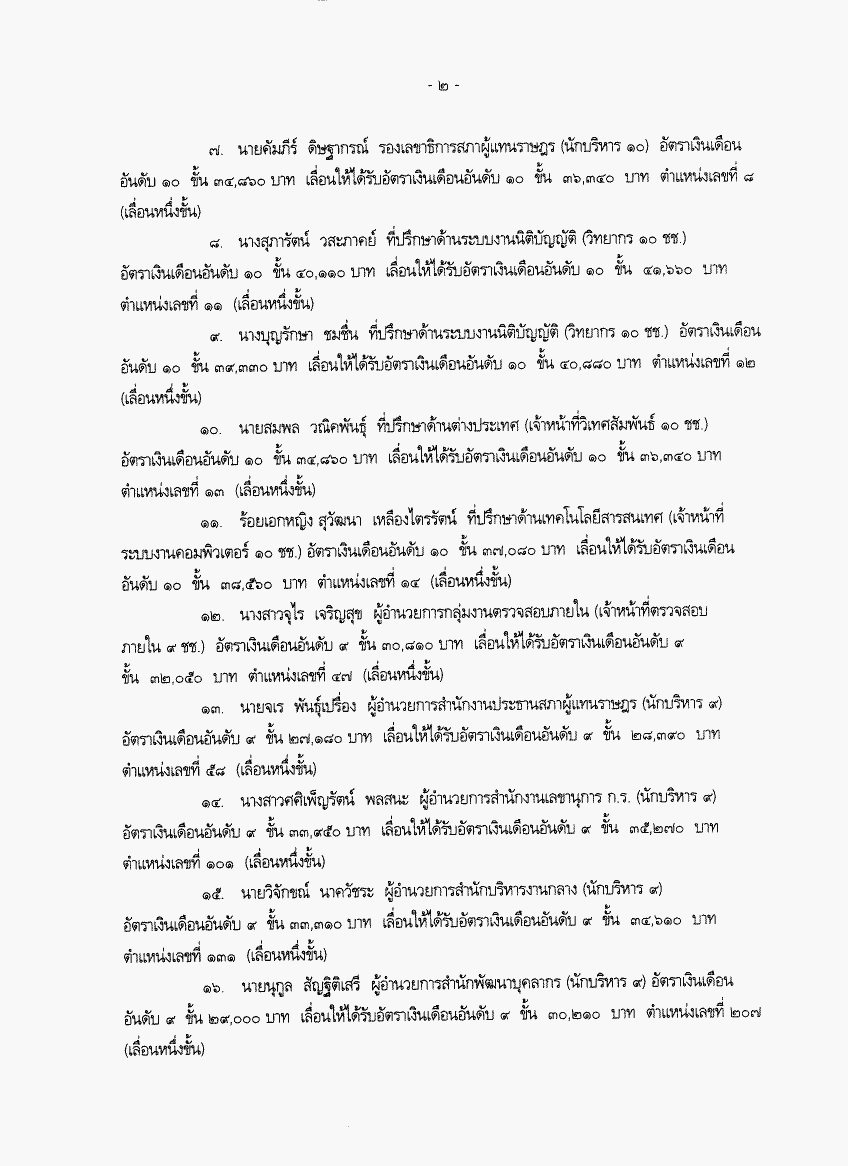 - ๒ -
๗. นายคัมภีร์ ดิษฐากรณ์ รองเลขาธิการสภาผู้แทนราษฎร (นักบริหาร ๑๐) อัตราเงินเดือน
อันดับ ๑๐ ขั้น ๓๔,๘๖๐ บาท เลื่อนให้ได้รับอัตราเงินเดือนอันดับ ๑๐ ขั้น ๓๖,๓๔๐ บาท ตำแหน่งเลขที่ ๘
(เลื่อนหนึ่งขั้น)
๘. นางสุภารัตน์ วสะภาคย์ ที่ปรึกษาด้านระบบงานนิติบัญญัติ (วิทยากร ๑๐ ชช.)
อัตราเงินเดือนอันดับ ๑๐ ขั้น ๔๐,๑๑๐ บาท เลื่อนให้ได้รับอัตราเงินเดือนอันดับ ๑๐ ขั้น ๔๑,๖๖๐ บาท
ตำแหน่งเลขที่ ๑๑ (เลื่อนหนึ่งขั้น)
๙. นางบุญรักษา ชมชื่น ที่ปรึกษาด้านระบบงานนิติบัญญัติ (วิทยากร ๑๐ ชช.) อัตราเงินเดือน
อันดับ ๑๐ ขั้น ๓๙,๓๓๐ บาท เลื่อนให้ได้รับอัตราเงินเดือนอันดับ ๑๐ ขั้น ๔๐,๘๘๐ บาท ตำแหน่งเลขที่ ๑๒
(เลื่อนหนึ่งขั้น)
๑๐. นายสมพล วณิคพันธุ์ ที่ปรึกษาด้านต่างประเทศ (เจ้าหน้าที่วิเทศสัมพันธ์ ๑๐ ชช.)
อัตราเงินเดือนอันดับ ๑๐ ขั้น ๓๔,๘๖๐ บาท เลื่อนให้ได้รับอัตราเงินเดือนอันดับ ๑๐ ขั้น ๓๖,๓๔๐ บาท
ตำแหน่งเลขที่ ๑๓ (เลื่อนหนึ่งขั้น)
๑๑. ร้อยเอกหญิง สุวัฒนา เหลืองไตรรัตน์ ที่ปรึกษาด้านเทคโนโลยีสารสนเทศ (เจ้าหน้าที่
ระบบงานคอมพิวเตอร์ ๑๐ ชช.) อัตราเงินเดือนอันดับ ๑๐ ขั้น ๓๗,๐๘๐ บาท เลื่อนให้ได้รับอัตราเงินเดือน
อันดับ ๑๐ ขั้น ๓๘,๕๖๐ บาท ตำแหน่งเลขที่ ๑๔ (เลื่อนหนึ่งขั้น)
๑๒. นางสาวจุไร เจริญสุข ผู้อำนวยการกลุ่มงานตรวจสอบภายใน (เจ้าหน้าที่ตรวจสอบ
ภายใน ๙ ชช.) อัตราเงินเดือนอันดับ ๙ ขั้น ๓๐,๘๑๐ บาท เลื่อนให้ได้รับอัตราเงินเดือนอันดับ ๙
ขั้น ๓๒,๐๕๐ บาท ตำแหน่งเลขที่ ๔๗ (เลื่อนหนึ่งขั้น)
๑๓. นายจเร พันธุ์เปรื่อง ผู้อำนวยการสำนักงานประธานสภาผู้แทนราษฎร (นักบริหาร ๙)
อัตราเงินเดือนอันดับ ๙ ขั้น ๒๗,๑๘๐ บาท เลื่อนให้ได้รับอัตราเงินเดือนอันดับ ๙ ขั้น ๒๘,๓๙๐ บาท
ตำแหน่งเลขที่ ๕๘ (เลื่อนหนึ่งขั้น)
๑๔. นางสาวศศิเพ็ญรัตน์ พลสนะ ผู้อำนวยการสำนักงานเลขานุการ ก.ร. (นักบริหาร ๙)
อัตราเงินเดือนอันดับ ๙ ขั้น ๓๓,๙๕๐ บาท เลื่อนให้ได้รับอัตราเงินเดือนอันดับ ๙ ขั้น ๓๕,๒๗๐ บาท
ตำแหน่งเลขที่ ๑๐๑ (เลื่อนหนึ่งขั้น)
๑๕. นายวิจักขณ์ นาควัชระ ผู้อำนวยการสำนักบริหารงานกลาง (นักบริหาร ๙)
อัตราเงินเดือนอันดับ ๙ ขั้น ๓๓,๓๑๐ บาท เลื่อนให้ได้รับอัตราเงินเดือนอันดับ ๙ ขั้น ๓๔,๖๑๐ บาท
ตำแหน่งเลขที่ ๑๓๑ (เลื่อนหนึ่งขั้น)
๑๖. นายนุกูล สัญฐิติเสรี ผู้อำนวยการสำนักพัฒนาบุคลากร (นักบริหาร ๙) อัตราเงินเดือน
อันดับ ๙ ขั้น ๒๙,๐๐๐ บาท เลื่อนให้ได้รับอัตราเงินเดือนอันดับ ๙ ขั้น ๓๐,๒๑๐ บาท ตำแหน่งเลขที่ ๒๐๗
(เลื่อนหนึ่งขั้น)